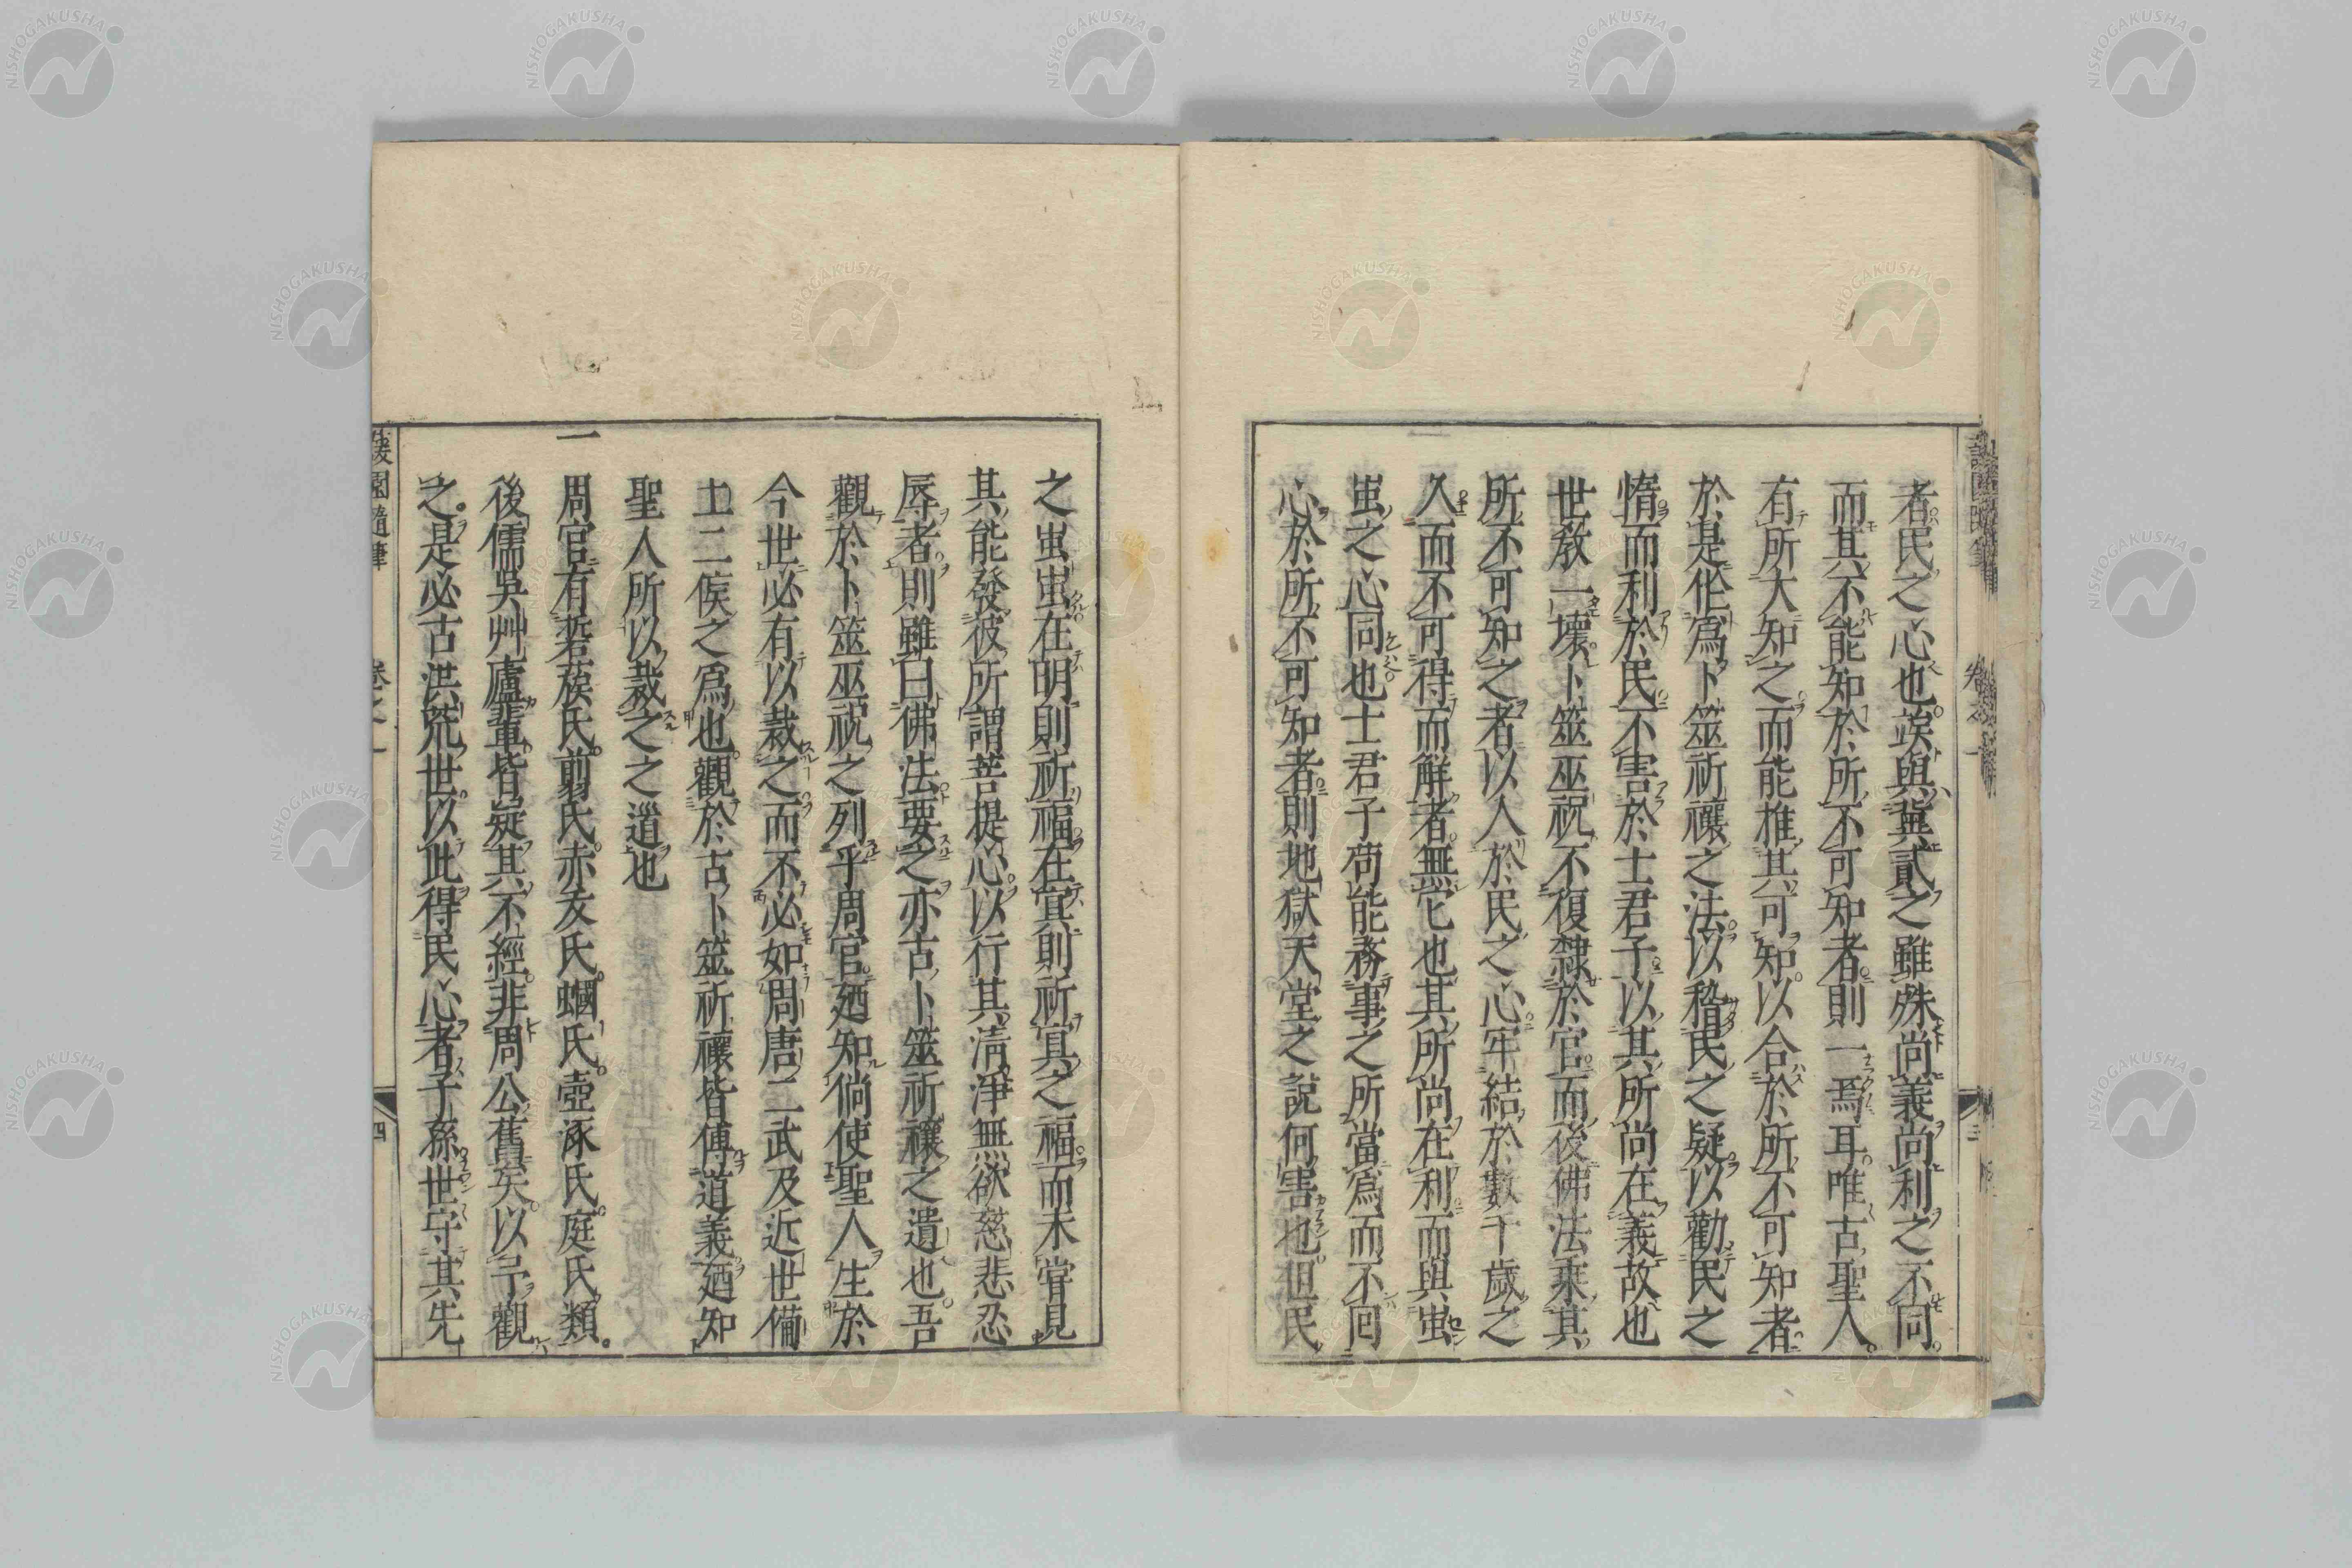 者民之心也。故與冀貳之雖殊尚義尚利之不同。
而其不能知於所不可知者則一焉耳。唯古聖人。
有所大知之而能推其可知。以合於所不可知者
於是作爲卜筮祈禳之法。以稽民之疑。以勸民之
惰而利於民。不害於士君子。以其所尚在義故也
世教一壞。卜筮巫祝不復隸於官。而後佛法乘其
所不可知之者以人於民之心牢結於數千歲之
久而不可得而解者。無它也其所尚在利而與蚩
蚩之心同也。士君子苟能務事之所當爲而不囘
心於所不可知者。則地獄天堂之說何害也。但民
之蚩蚩。在明則祈福在冥則祈冥之福。而未甞見
其能發彼所謂菩提心。以行其淸淨無欲慈悲忍
辱者。則雖曰佛法。要之亦古卜筮祈禳之遺也。吾
觀於卜筮巫祝之列乎周官。廼知倘使聖人生於
今世必有以裁之。而不必如周唐二武及近世備
土二侯之爲也。觀於古卜筮祈禳皆傅道義廼知
聖人所以裁之之道也
一
周官有硩蔟氏。剪氏。赤犮氏。蟈氏。壺涿氏。庭氏類。
後儒吳艸廬輩皆疑其不經。非周公舊矣。以予觀
之。是必古洪荒世。以此得民心者子孫世守其先
蘐園隨筆
卷之一
四